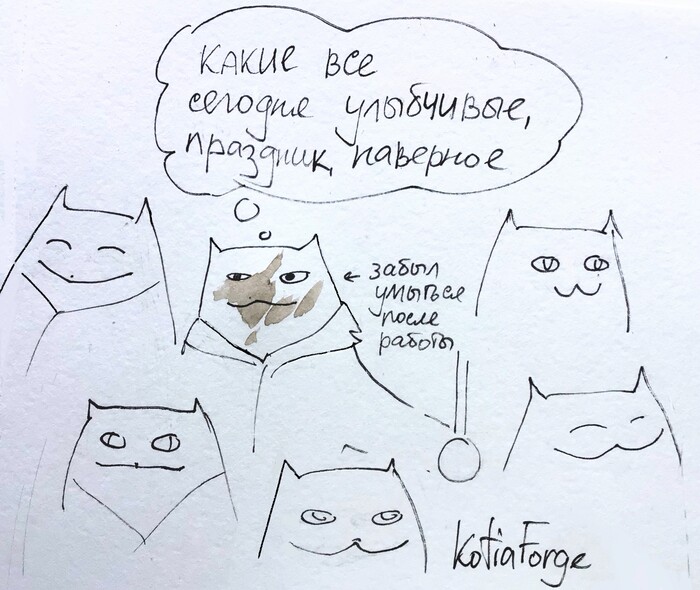 какие все
сегодня улыбчивые,
праздник, наверное
← забыл
умыться
после
работы
KotiaForge